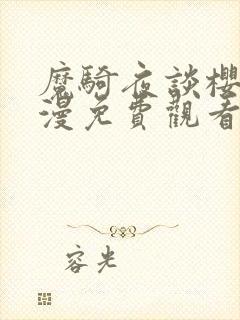 魔騎夜談櫻
漫免費觀看
容光